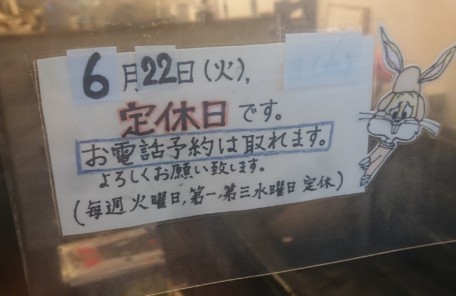 6月22日(火),
定休日です。
お電話予約は取れます。
よろしくお願い致します。
(毎週火曜日,第一,第三水曜日 定休)